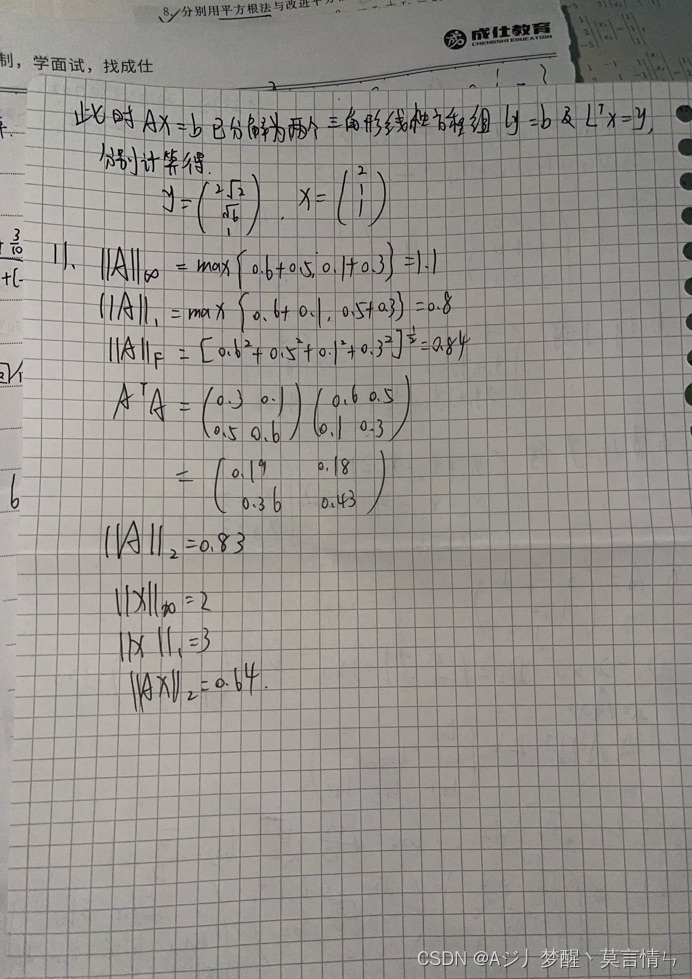 8、分别用平方根法与改进平方
成仕教育
CHENGSHI EDUCATION
制，学面试，找成仕
此时 AX=b 已分解为两个三角形线性方程组 Ly=b 及 L^T x=y,
分别计算得.
y=(2√2 √6 1) . x=(2 1 1)
11、||A||∞ = max{0.6+0.5, 0.1+0.3}=1.1
||A||₁ = max{0.6+0.1, 0.5+0.3}=0.8
||A||F = [0.6²+0.5²+0.1²+0.3²]^½=0.84
A^T A = (0.3 0.1 0.5 0.6) (0.6 0.5 0.1 0.3)
= (0.19 0.18 0.36 0.43)
||A||₂=0.83
||X||∞=2
||X||₁=3
||AX||₂=0.64.
3/10
+(-
6
CSDN @Aジ丿梦醒丶莫言情ㄣ